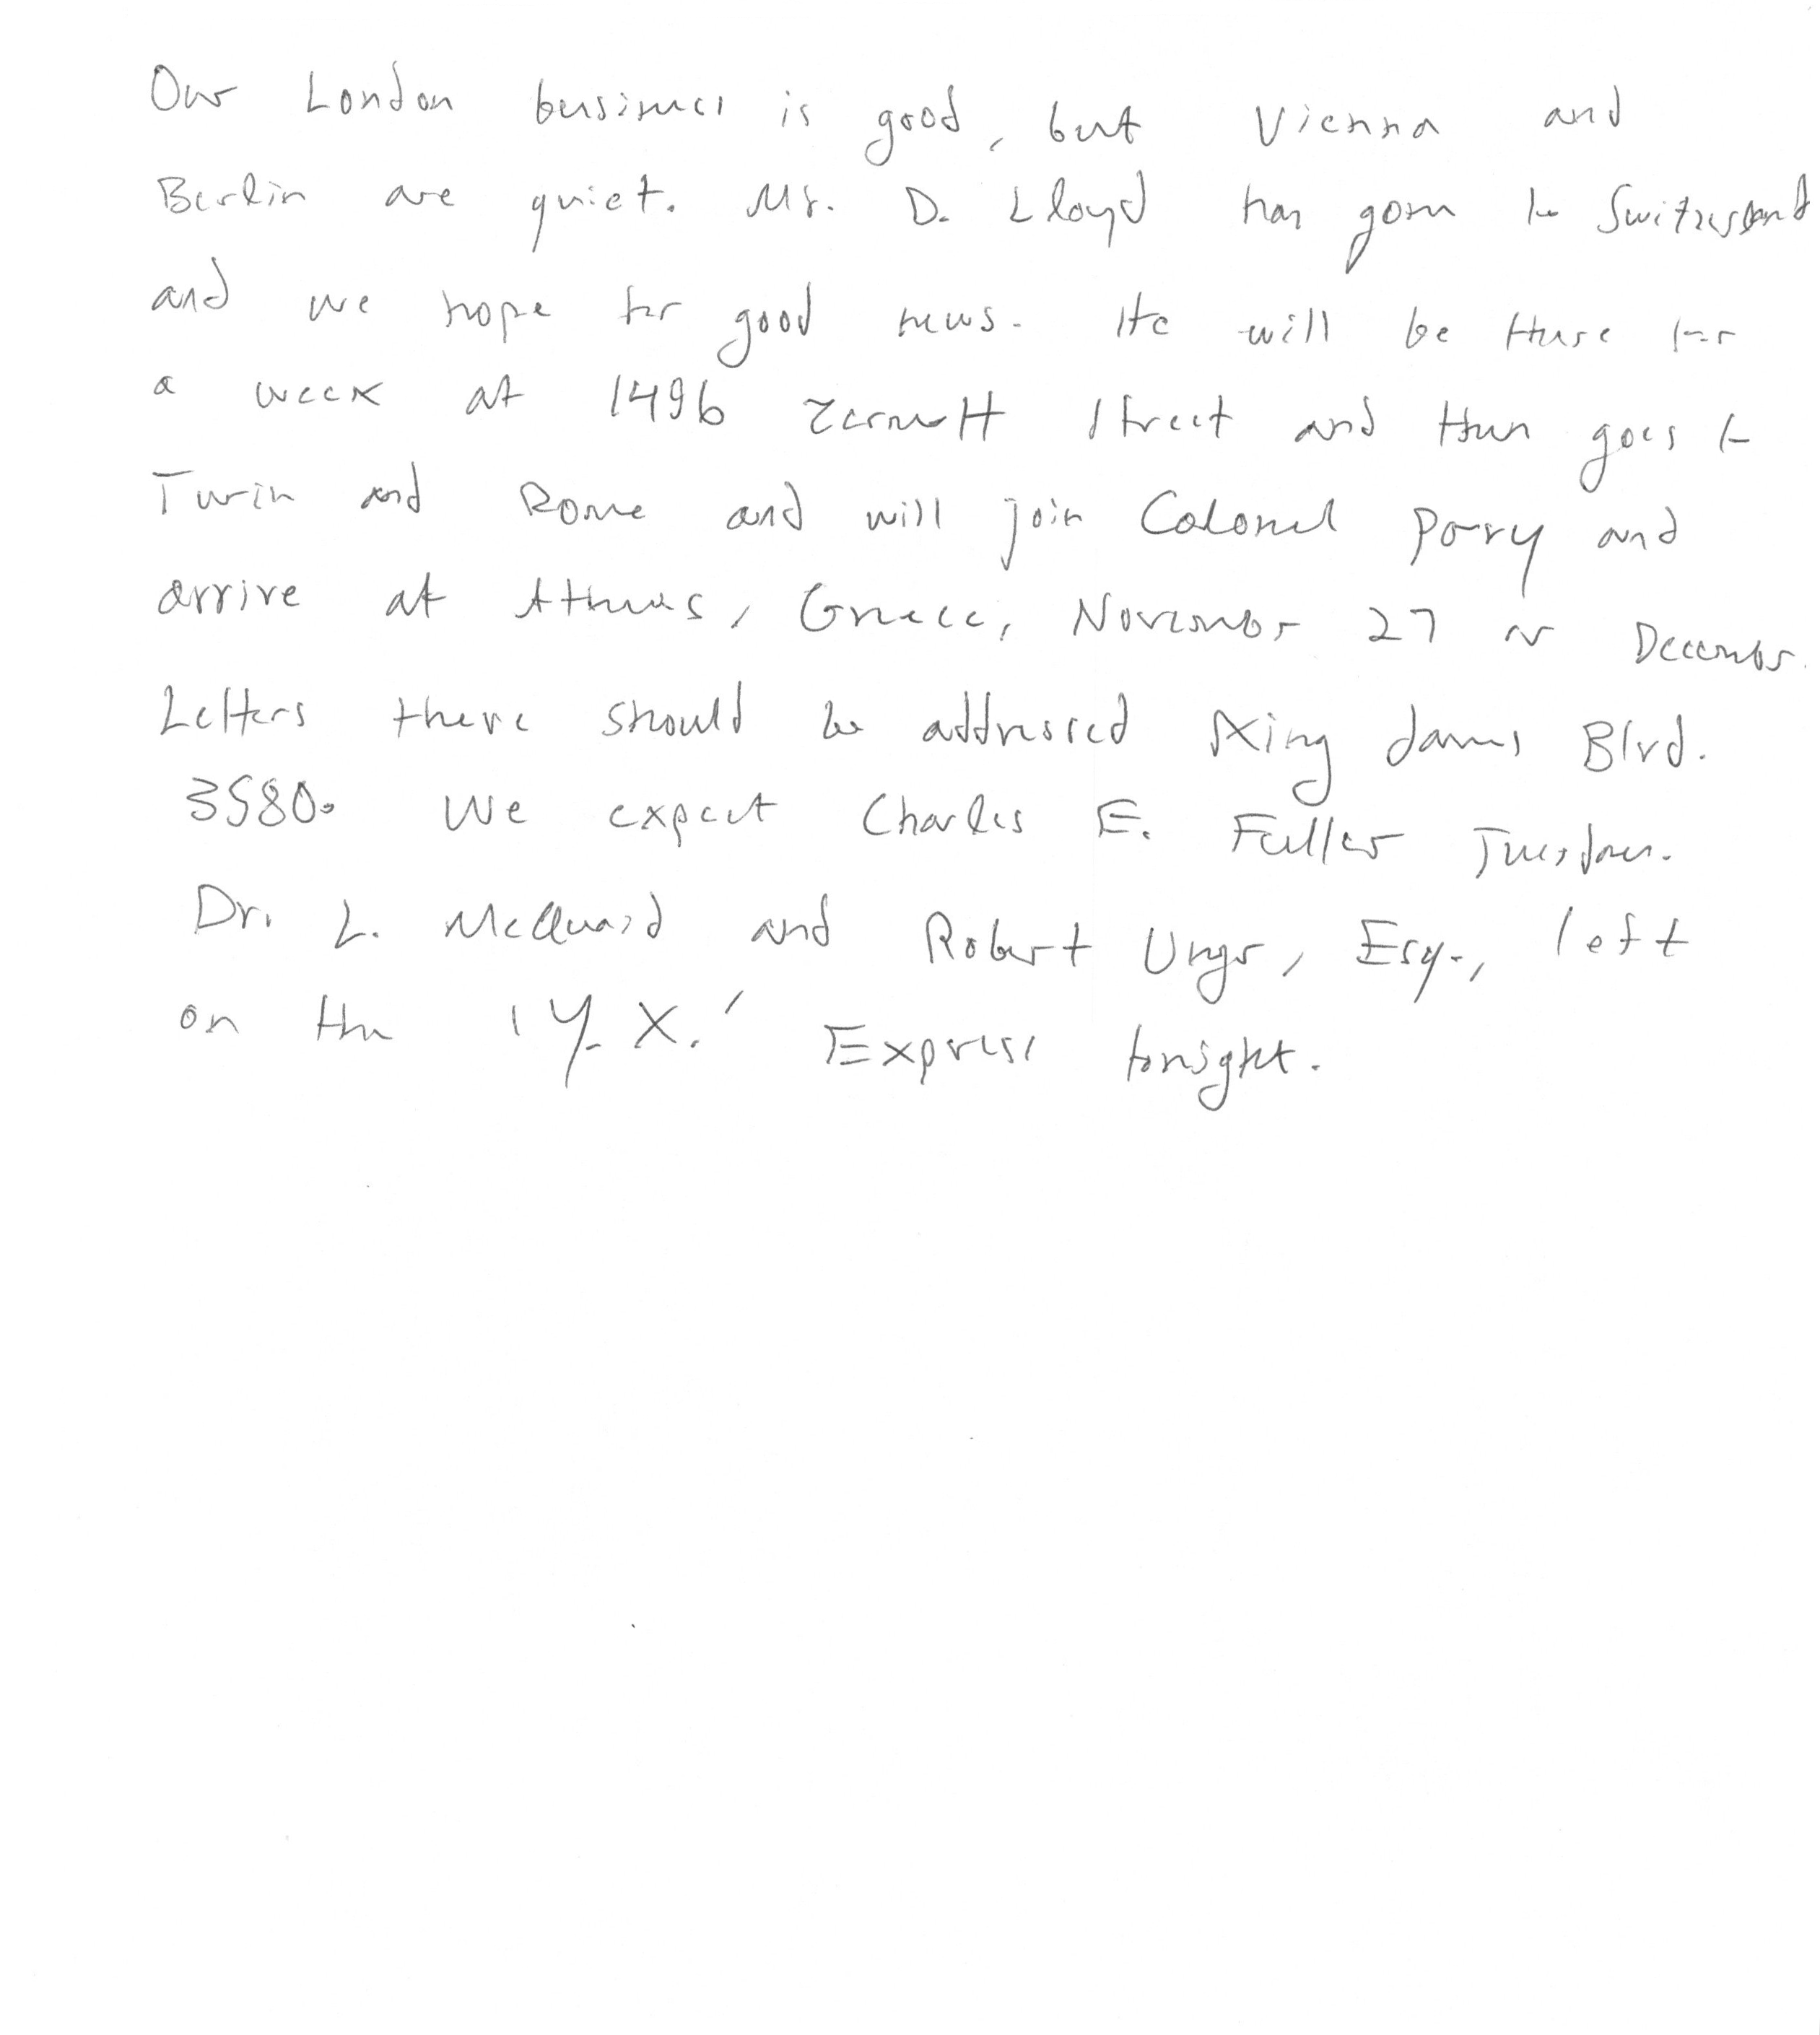 Our London business is good, but Vienna and
Berlin are quiet. Mr. D. Lloyd has gone to Switzerland
and we hope for good news. He will be there for
a week at 1496 Zermott Street and then goes to
Turin and Rome and will join Colonel Parry and
arrive at Athens, Greece, November 27 or December.
Letters there should be addressed King James Blvd.
3580. We expect Charles E. Fuller Tuesday.
Dr. L. McQuaid and Robert Unger, Esq., left
on the 'Y. X.' Express tonight.